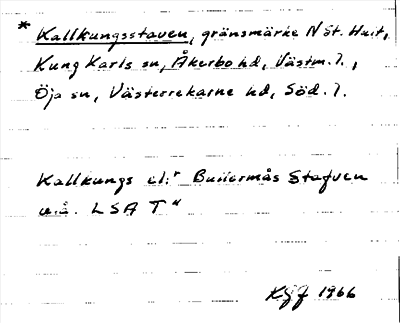 * Kallkungsstaven, gränsmärke N St. Huit,
Kung Karls sn, Åkerbo hd, Västm. l.,
Öja sn, Västerrekarne hd, Söd. l.
Kallkungs el:r Bullermås Stafven
u.å. LSA T"
1966